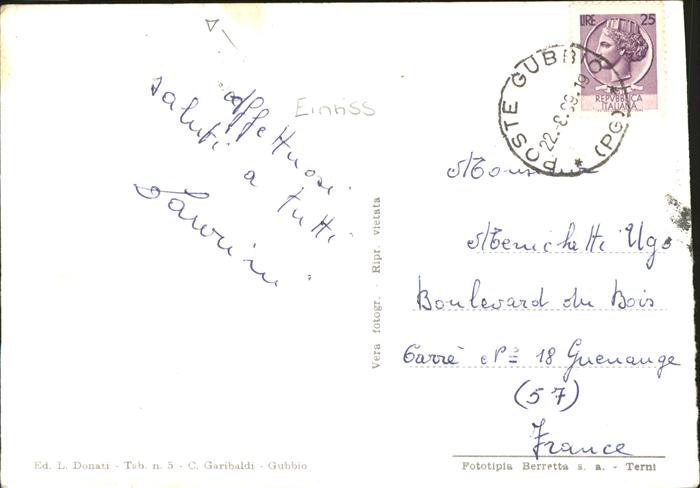 affettuosi
saluti a tutti
Einriss
LIRE 25
REPVBBLICA
ITALIANA
POSTE GUBBIO (PG)
Menichetti Ugo
Boulevard du Bois
Carrè N= 18 Guenange
(57)
France
Vera fotogr. - Ripr. vietata
Ed. L. Donati - Tab. n. 5 - C. Garibaldi - Gubbio
Fototipia Berretta s. a. - Terni